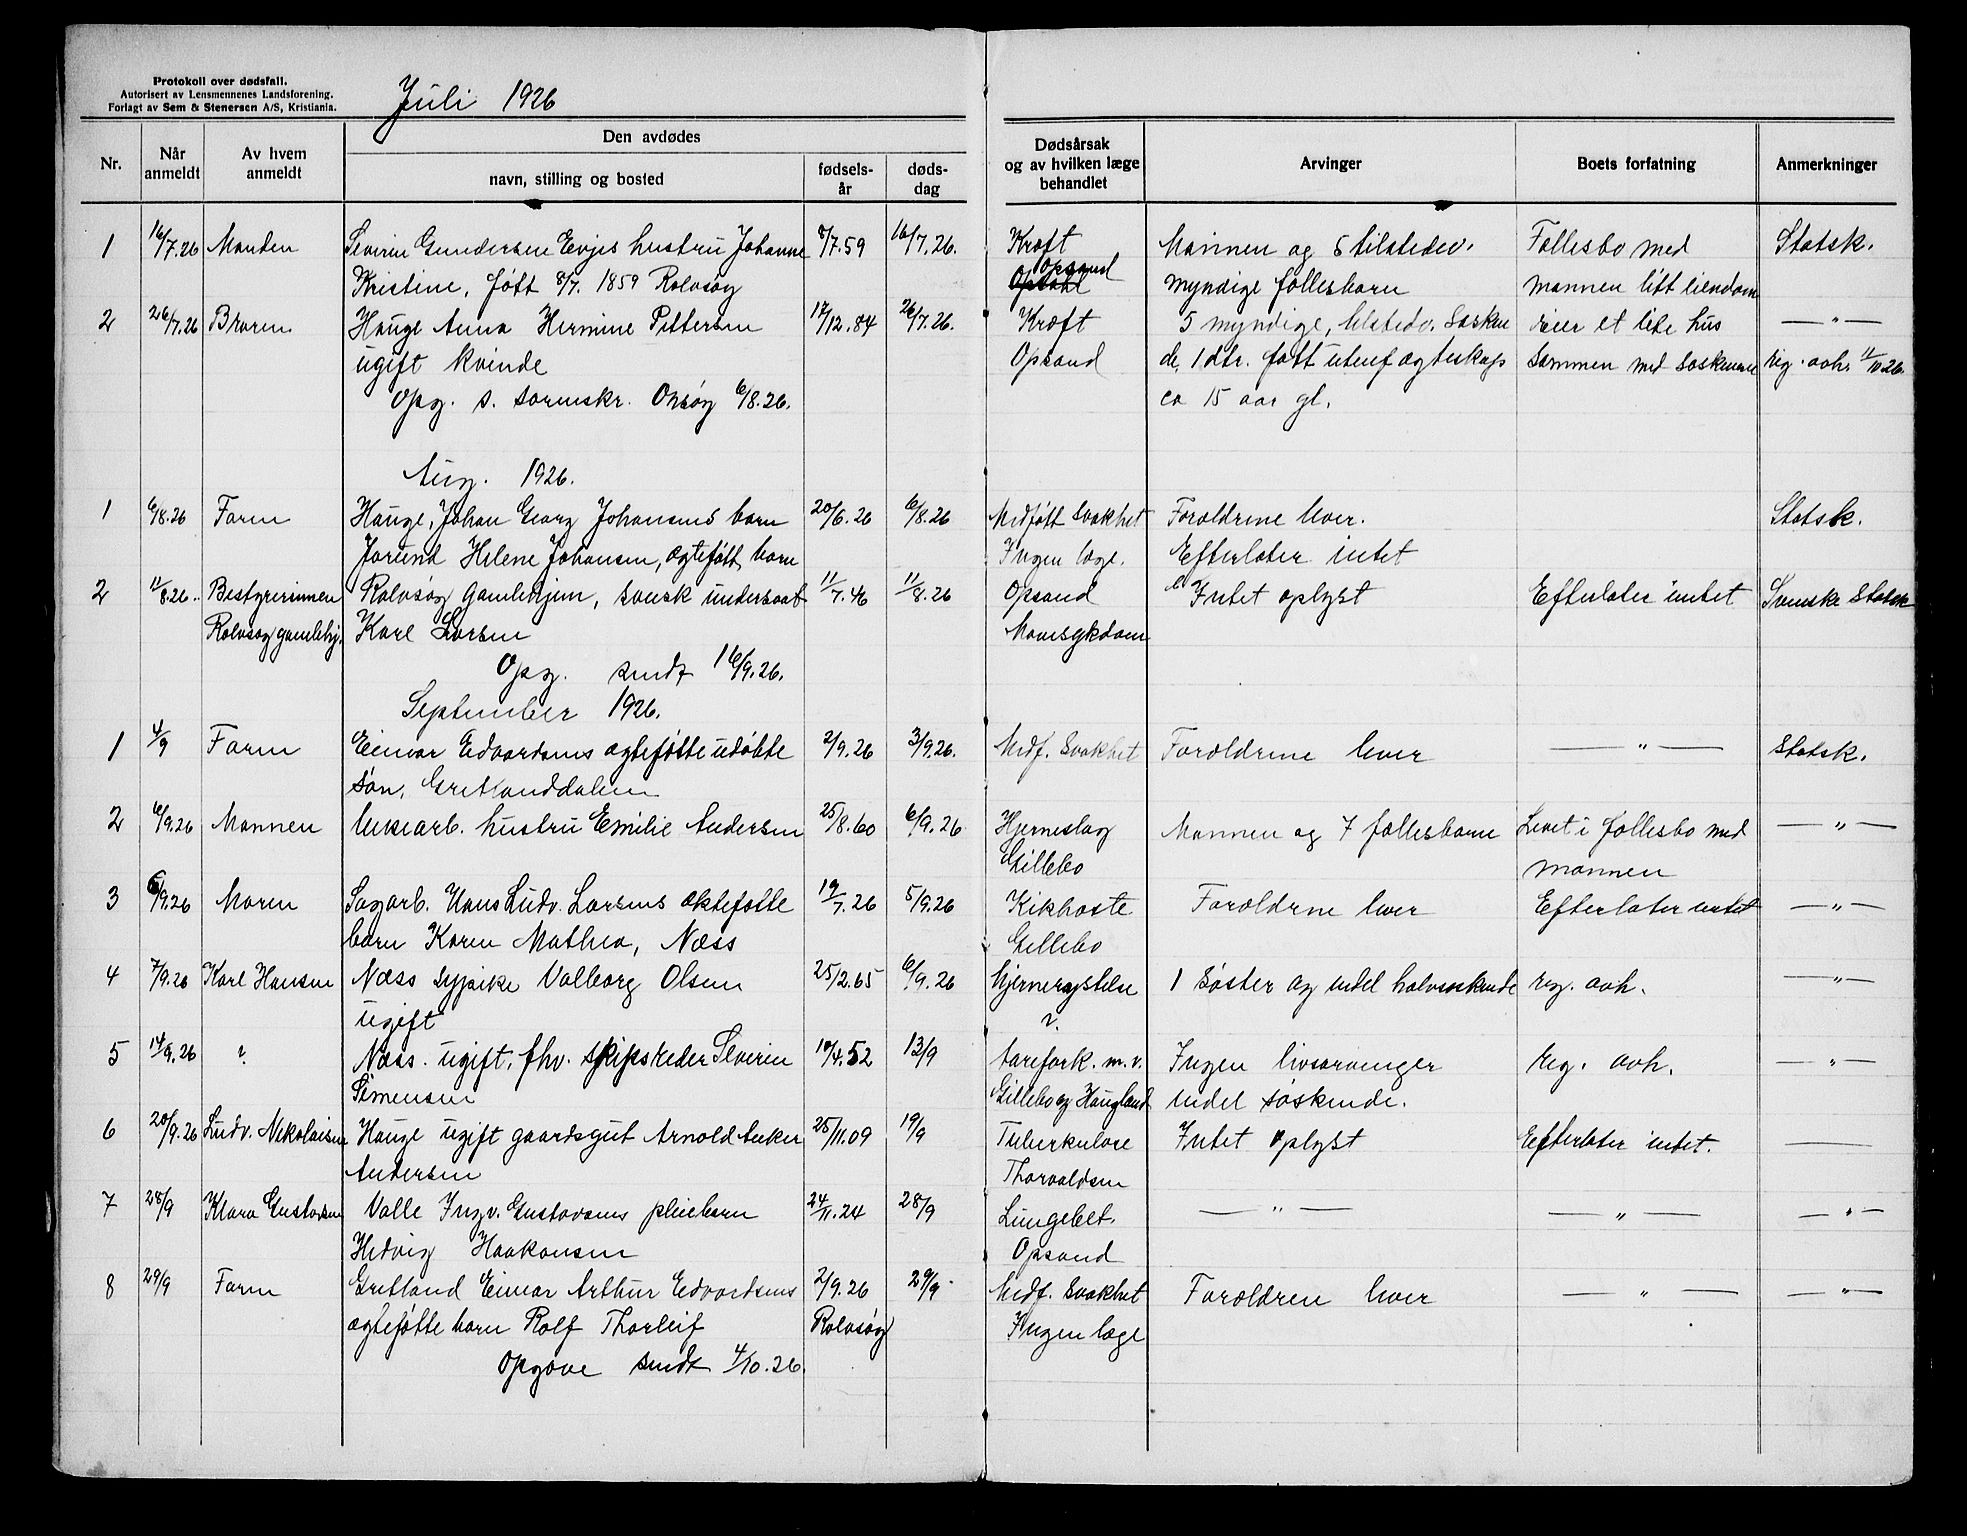 Protokoll over dødsfall.
Autorisert av Lensmennenes Landsforening.
Forlagt av Sem & Stenersen A/S, Kristiania.
Juli 1926
Nr. | Når anmeldt | Av hvem anmeldt | Den avdødes navn, stilling og bosted | fødselsår | dødsdag | Dødsårsak og av hvilken læge behandlet | Arvinger | Boets forfatning | Anmerkninger
1 16/7.26 Manden Severin Gundersen Evjes hustru Johanne 8/7.59 16/7.26. Kræft Mannen og 5 tilstedev. Fællesbo med Statsk.
Kristine, født 8/7. 1859 Rolvsøy Opsand myndige fællesbarn mannen litt eiendom
2 26/7.26 Broren Hauge Anna Hermine Pettersen 17/12.84 26/7.26. Kræft 5 myndige, tilstedv. Søsken Eier et lite hus — " —
ugift kvinde Opsand de, 1 dtr. født utenf ægteskap sammen med søsknene reg. avh. 11/10 26.
Opg. s. sorenskr. Onsøy 6/8.26. ca 15 aar gl.
Aug. 1926.
1 6/8.26 Faren Hauge, Johan Georg Johansens barn 20/6.26 6/8.26 Medfødt svakhet Forældrene lever. Statsk.
Jorund Helene Johansen, ægtefødt barn Ingen læge. Efterlater intet
2 11/8.26 Bestyrerinnen Rolvsøy Gamlehjem, svensk undersaat 11/7.46 11/8.26 Opsand Intet oplyst Efterlater intet Svenske Statsk
Rolvsøy gamlehj. Karl Larsen
Opg. sendt 16/9.26.
September 1926.
1 4/9 Faren Einar Edvardsens ægtefødte udøbte 2/9.26 3/9.26. Medf. Svakhet Forældrene lever — " — Statsk.
søn, Greaakerdalen
2 6/9.26 Mannen hustru Emilie Andersen 25/8.60 6/9.26 Hjerneslag Mannen og 7 fællesbarn Levet i fællesbo med — " —
Gillebo mannen
3 6/9.26 Moren Sagarb. Hans Ludv. Larsens ektefødte 19/7.26 5/9.26 Kikhoste Forældrene lever Efterlater intet — " —
barn Karen Mathea, Næss Gillebo
4 7/9.26 Karl Hansen Næss sypike Valborg Olsen 25/2.65 6/9.26 Hjernerystelse 1 søster og endel halvsøskende reg. avh. — " —
ugift ?
5 14/9.26 ? Næss. ugift, fhv. skipsreder Severin 10/4.52 13/9 Aarefork. m.v. Ingen livsarvinger reg. avh. — " —
Simensen Gillebo og Haugland endel søskende.
6 20/9.26 Ludv. Nikolaisen Hauge ugift gaardsgut Arnold Anker 25/11.09 19/9 Tuberkulose Intet oplyst Efterlater intet. —
Andersen Thorvaldsen
7 28/9 Klara Gustavsen Valle Ingv. Gustavsens pleiebarn 24/11.24 28/9 Lungebet. — " — — " — — " —
Hedvig Haakonsen Opsand
8 29/9 Faren Greaaker Einar Arthur Edvardsens 2/9.26 29/9 Medf. Svakhet Forældrene lever — " — — " —
ægtefødte barn Rolf Thorleif Rolvsøy Ingen læge
Opgave sendt 4/10.26.